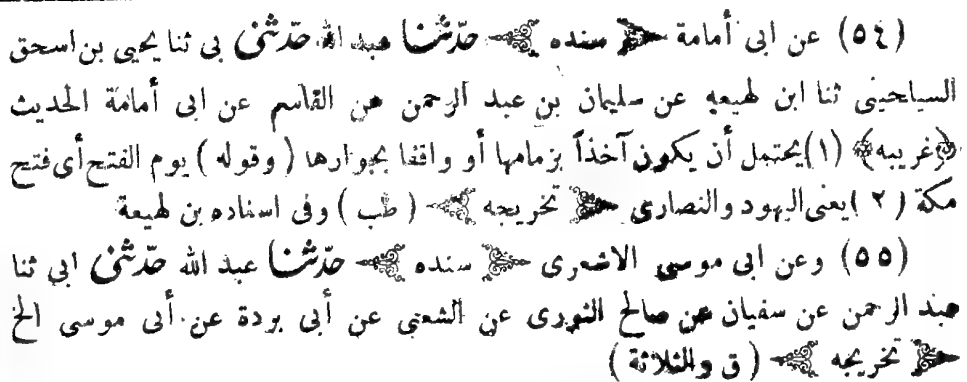 (٥٤) عن ابى أمامة ﴿ سنده ﴾ حدّثنا عبد الله حدّثنى بى ثنا يحيى بن اسحق
السيلحينى ثنا ابن لهيعه عن سليمان بن عبد الرحمن عن القاسم عن ابى أمامة الحديث
﴿غريبه﴾ (١) يحتمل أن يكون آخذاً بزمامها أو واقفا بجوارها (وقوله) يوم الفتح أى فتح
مكة (٢) يعنى اليهود والنصارى ﴿ تخريجه ﴾ (طب) وفى اسناده بن لهيعة
(٥٥) وعن ابى موسى الاشعرى ﴿ سنده ﴾ حدّثنا عبد الله حدّثنى ابى ثنا
عبد الرحمن عن سفيان عن صالح الثورى عن الشعبى عن أبى بردة عن أبى موسى الخ
﴿ تخريجه ﴾ (ق والثلاثة)